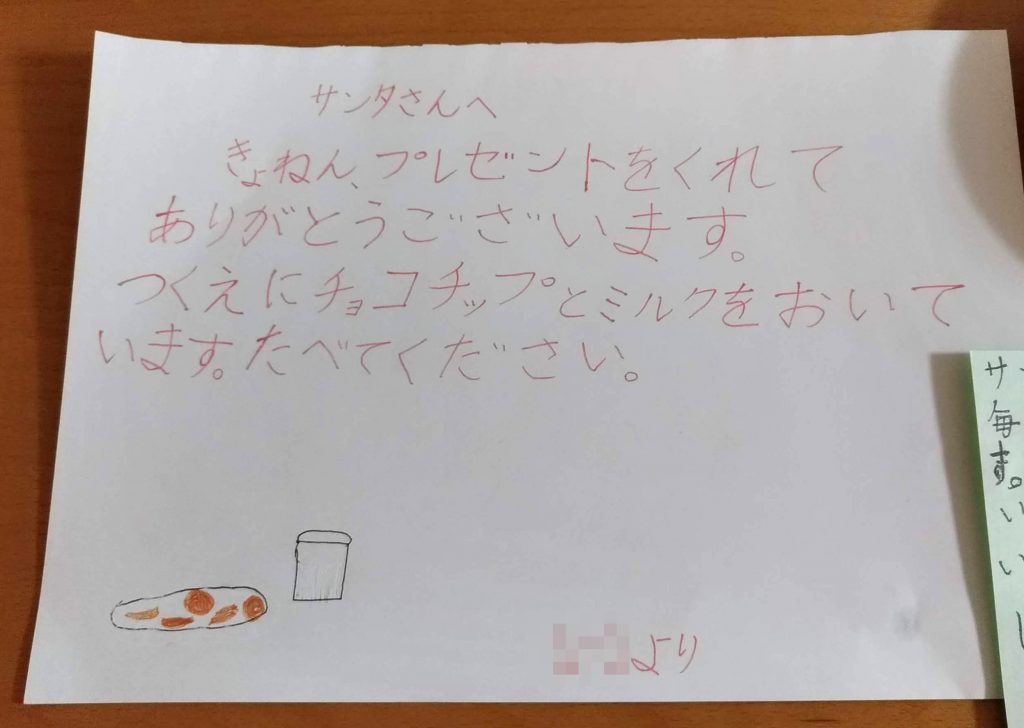 サンタさんへ
きょねん、プレゼントをくれて
ありがとうございます。
つくえにチョコチップとミルクをおいて
います。たべてください。
より
サ
毎
す。
い
い
し